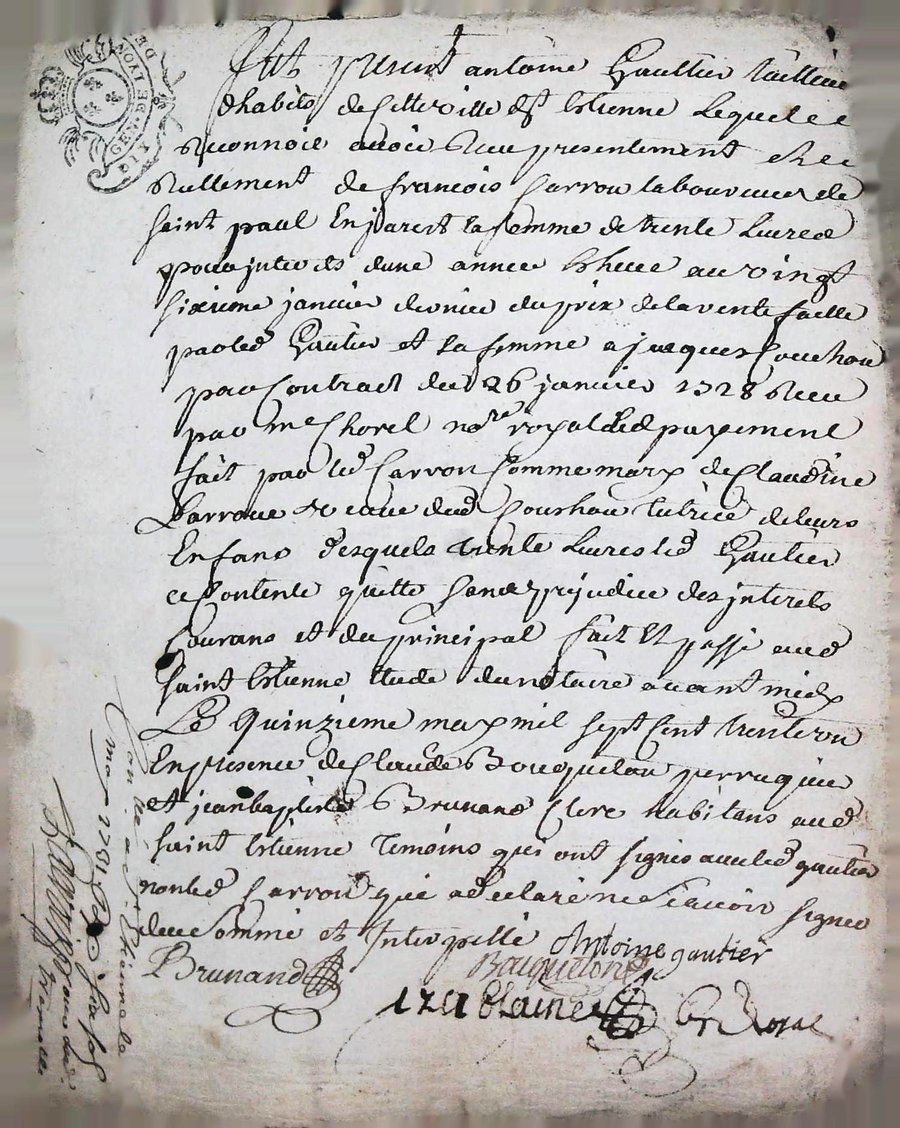 GEN. DE LYON
DIX DE
Fut present antoine Gaultier tailleur
dhabits de Cette ville de St Estienne Lequel a
Reconnoit avoir Receu presentement et
Reellement de francois Carrou laboureur de
saint paul En Jarest la somme de trente Livres
pour interets dune annee Echeue au vingt
sixieme janvier dernier du prix de la vente faitte
par led Gautier et sa femme a jacques Couchou
par Contract du 26 janvier 1728 Receu
par me Chorel nore royal led payement
fait par led Carrou Comme mary de Claudine
Barroue veuve dud Couchou tutrice de leurs
Enfans desquels trente Livres led Gautier
ce Contente quitte sans prejudice des interets
Courans et du principal fait Et passé aud
saint Estienne Etude du notaire avant midy
Le quinzieme may mil sept Cent trente un
En presence de Claude Bouqueton perruquier
et jean baptiste Brunand Clerc habitans aud
saint Estienne temoins qui ont signés avec led gautier
non led Carrou qui a declaré ne scavoir signer
de ce sommé et Interpellé Antoine gautier
Brunand
Bouqueton
Blaine
Royal
Con lle a St Etienne le
may 1731